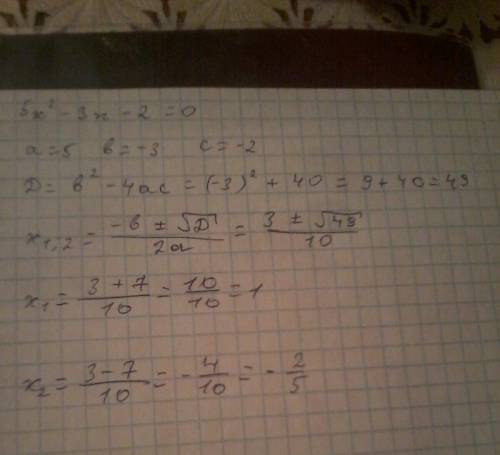 5x² - 3x - 2 = 0
a = 5 в = -3 c = -2
D = в² - 4ac = (-3)² + 40 = 9 + 40 = 49
x₁,₂ = (-в ± √D)/(2a) = (3 ± √49)/10
x₁ = (3 + 7)/10 = 10/10 = 1
x₂ = (3 - 7)/10 = -4/10 = -2/5